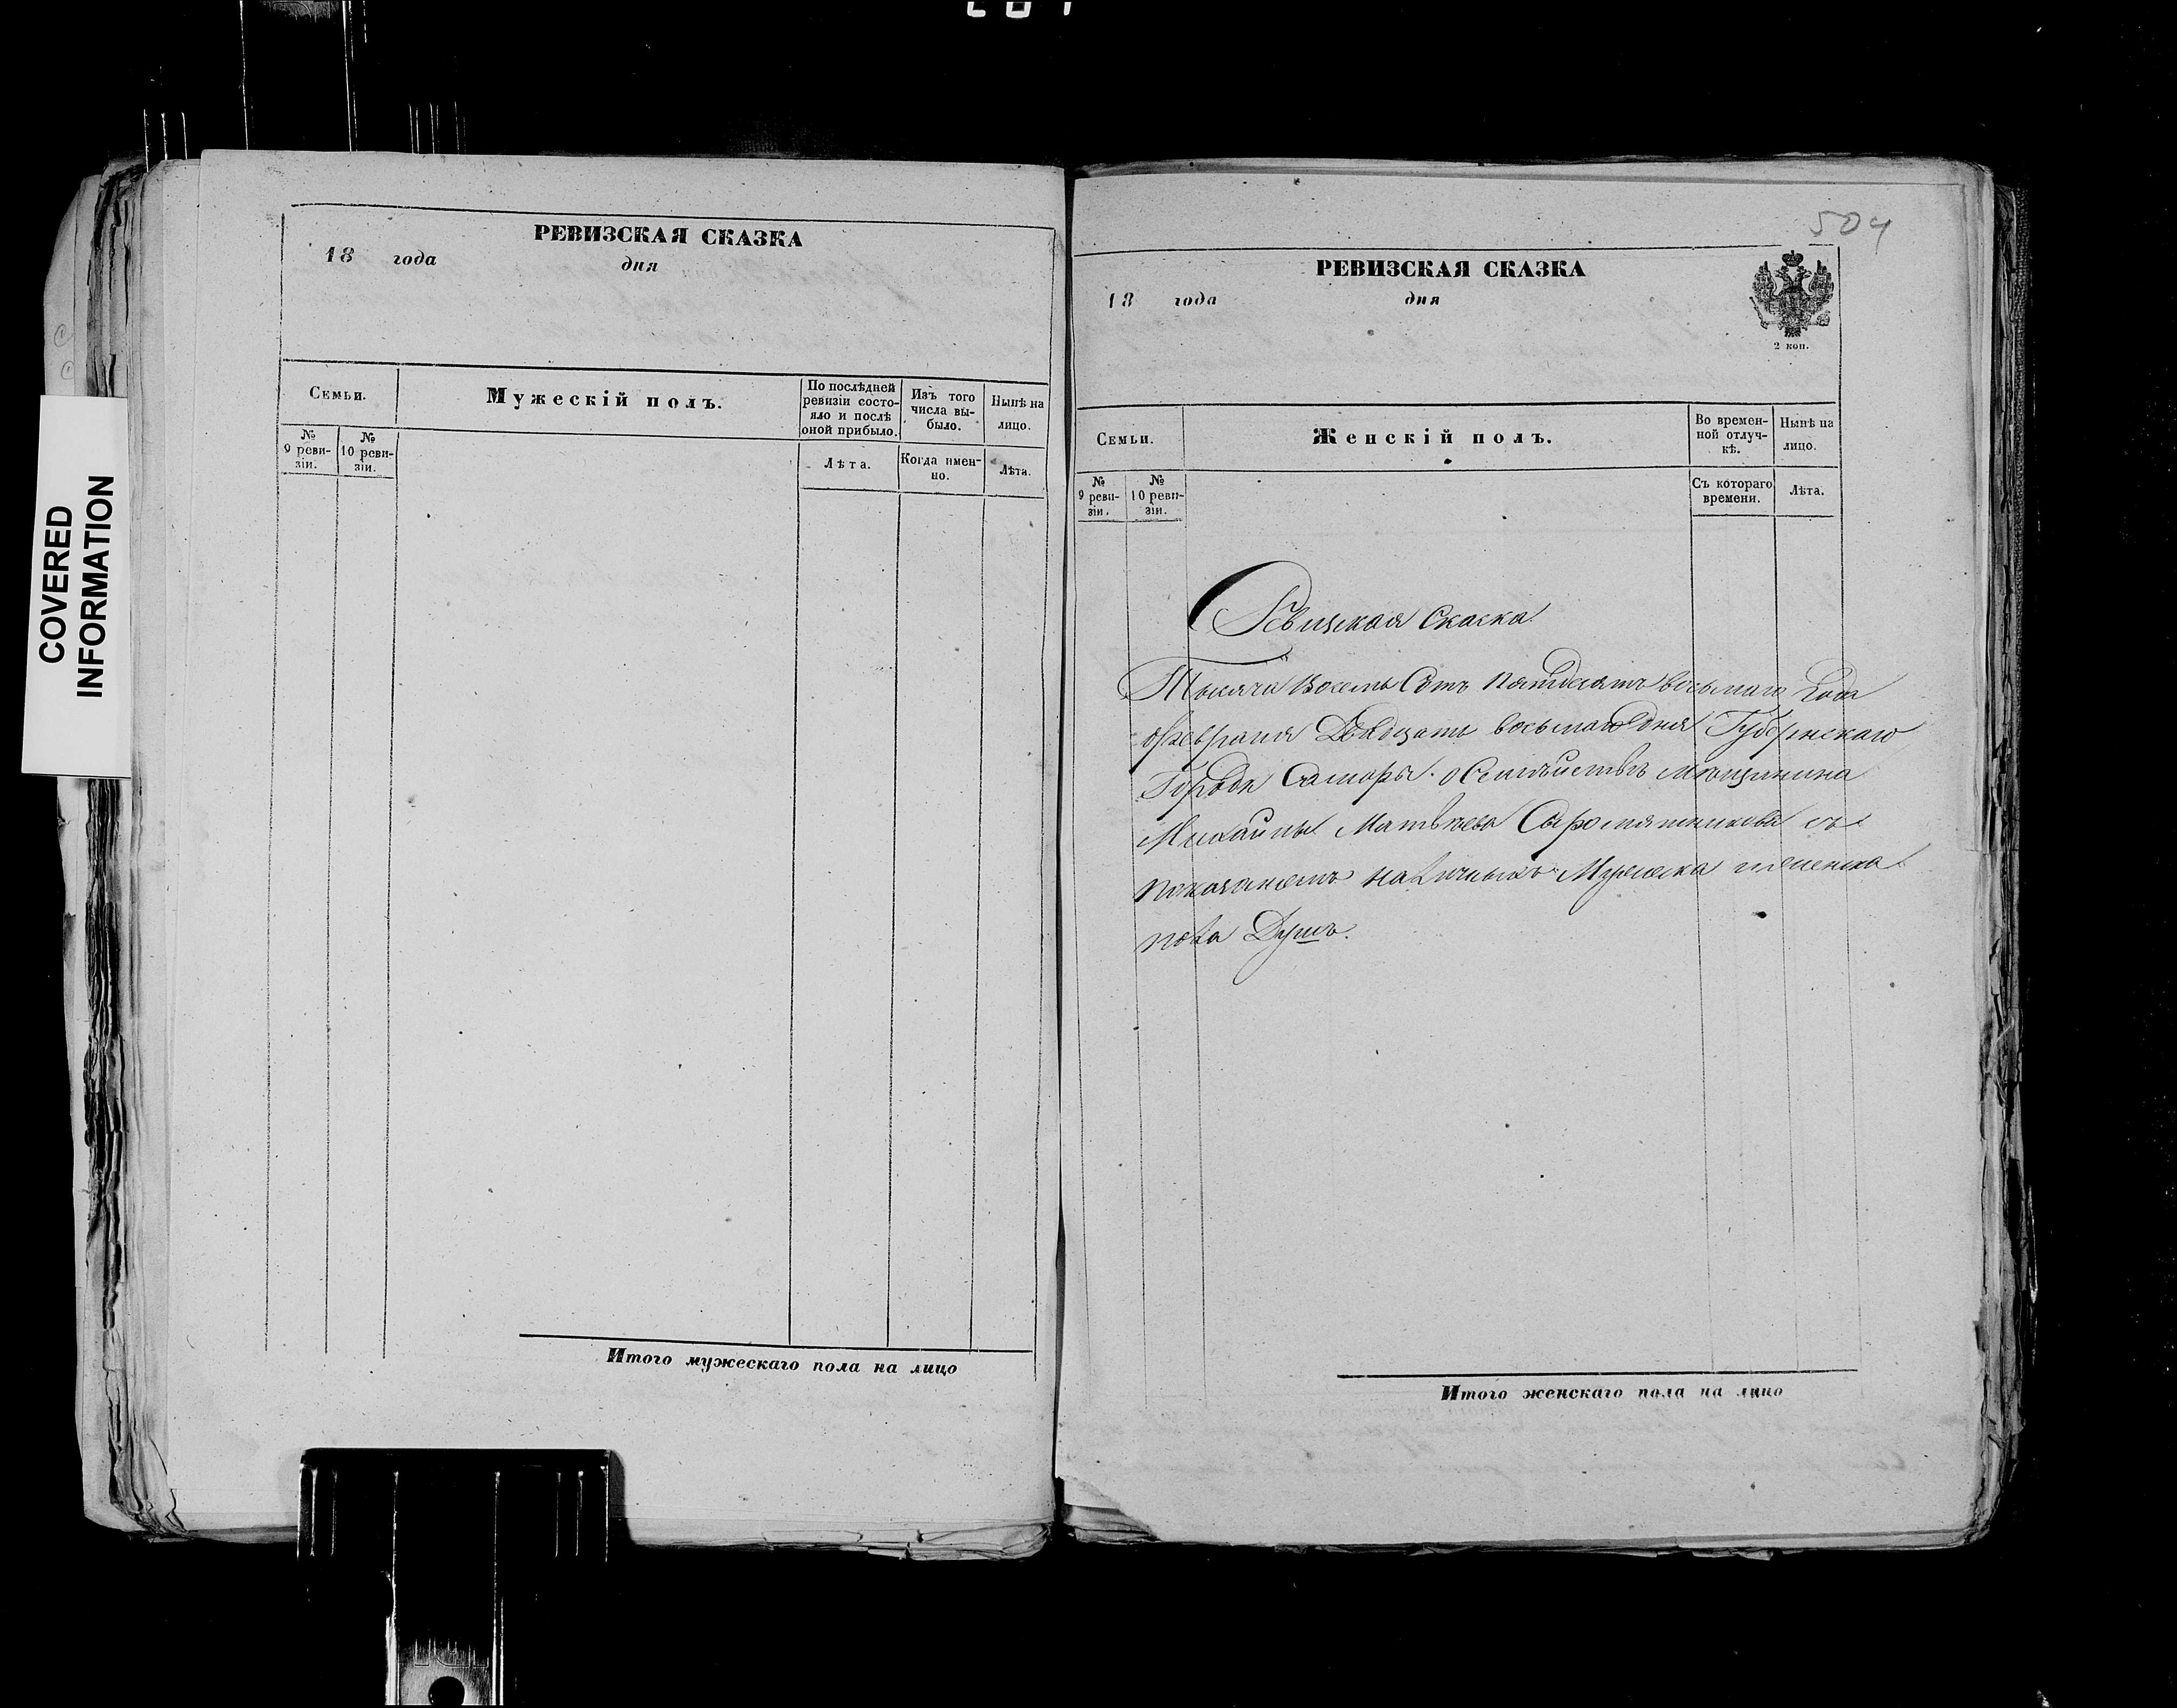 COVERED
INFORMATION
РЕВИЗСКАЯ СКАЗКА
18 года дня
Семьи.
Мужескій полъ.
По послѣдней
ревизіи состо-
яло и послѣ
оной прибыло.
Изъ того
числа вы-
было.
Нынѣ на
лицо.
№
9 реви-
зіи.
№
10 реви-
зіи.
Лѣта.
Когда имен-
но.
Лѣта.
Итого мужескаго пола на лицо
504
РЕВИЗСКАЯ СКАЗКА
18 года дня
2 коп.
Семьи.
Женскій полъ.
Во времен-
ной отлуч-
кѣ.
Нынѣ на
лицо.
№
9 реви-
зіи.
№
10 реви-
зіи.
Съ котораго
времени.
Лѣта.
Ревизская Сказка
Тысяча Восемь Сотъ пятдесятъ восьмаго Года
февраля Двадцать восьмаго дня Губернскаго
Города Самары о Семѣйствѣ мѣщанина
Михайлы Матвѣева Сыромятникова съ
показанемъ наличныхъ Мужеска и женска
пола Душъ.
Итого женскаго пола на лицо